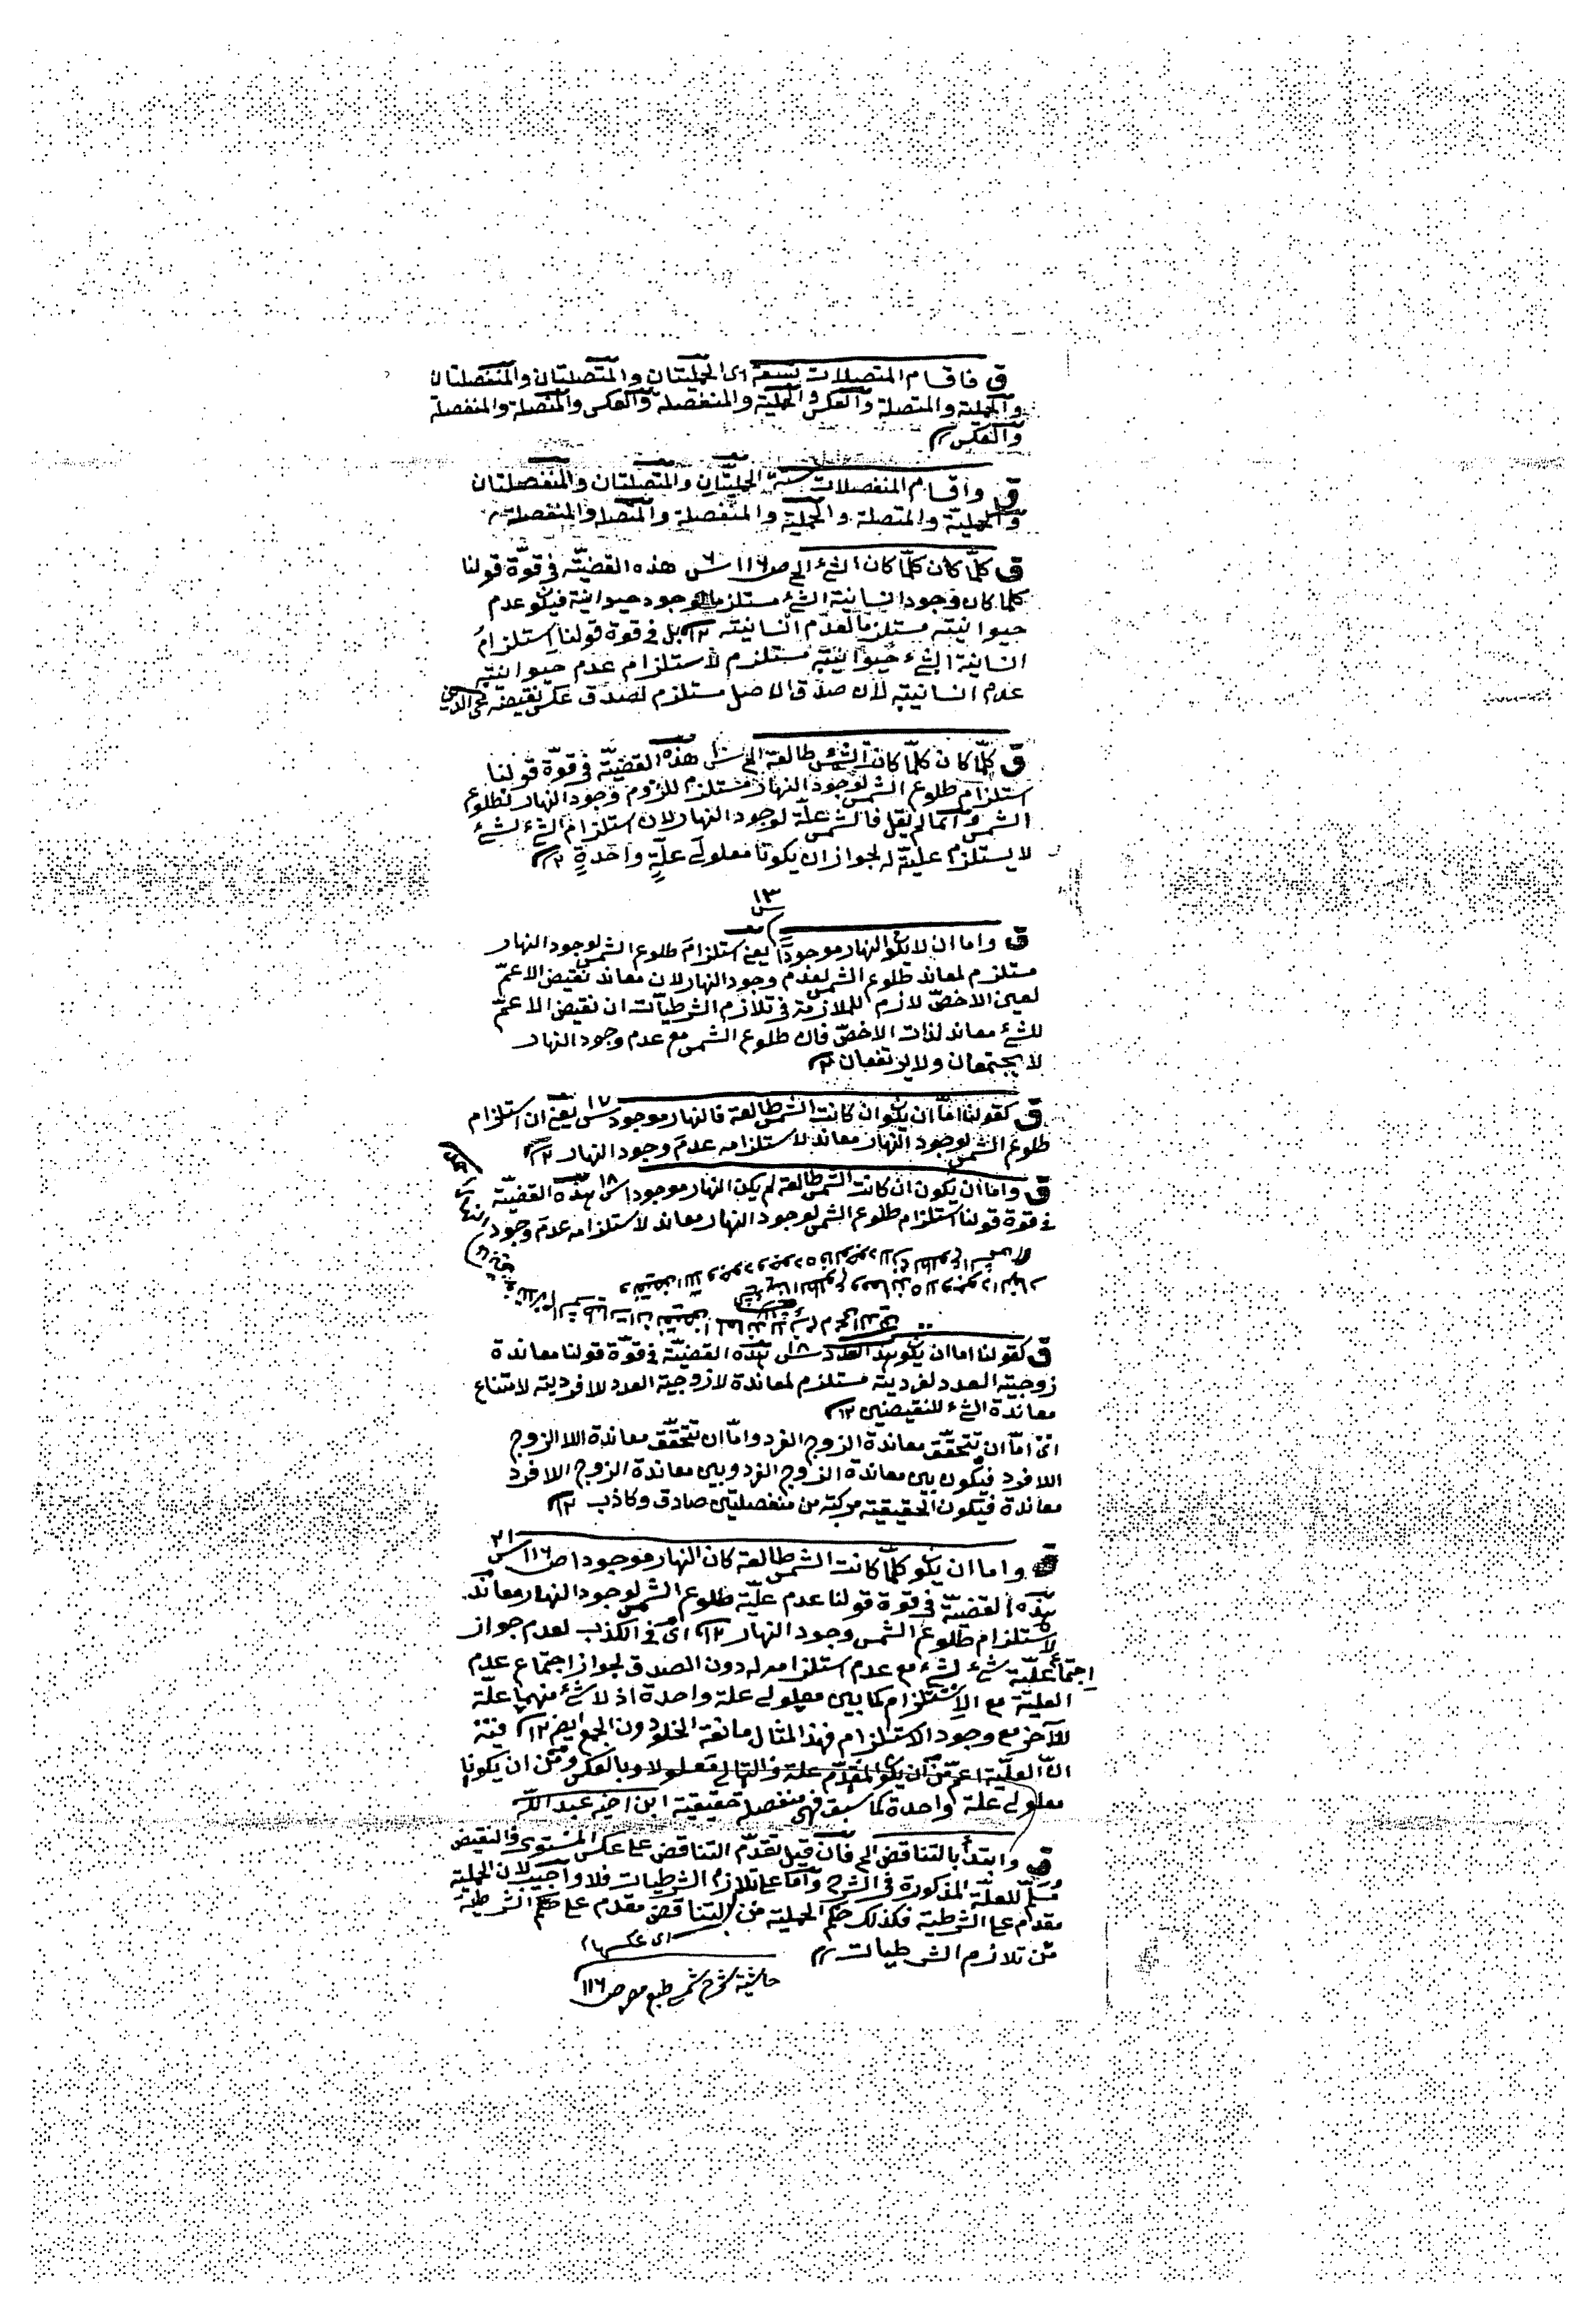 ق فاقسام المتصلات تسعة اى الحمليتان والمتصلتان والمنفصلتان
والحملية والمتصلة والعكس والحملية والمنفصلة والعكس والمتصلة والمنفصلة
والعكس
ق واقسام المنفصلات ستة الحمليتان والمتصلتان والمنفصلتان
والحملية والمتصلة والحملية والمنفصلة والمتصلة والمنفصلة
ق كلما كان كلما كان الشئ الخ ص ١١٦ س ٦ هذه القضيّة فى قوّة قولنا
كلما كان وجود انسانية الشئ مستلزما لوجود حيوانية فيكون عدم
حيوانيته مستلزما لعدم انسانيته ١٢ بل فى قوة قولنا استلزام
انسانية الشئ حيوانيته مستلزم لاستلزام عدم حيوانيته
عدم انسانيته لان صدق الاصل مستلزم لصدق عكس نقيضه محى الدين
ق كلّما كان كلّما كانت الشمس طالعة الخ س ١٠ هذه القضيّة فى قوّة قولنا
استلزام طلوع الشمس لوجود النهار مستلزم للزوم وجود النهار لطلوع
الشمس وانما لم يقل فالشمس علّة لوجود النهار لان استلزام الشئ لشئ
لا يستلزم عليّة له لجواز ان يكونا معلولى علّةٍ واحدةٍ ١٢
١٣
س
ق واما ان لا يكون النهار موجودًا يعنى استلزام طلوع الشمس لوجود النهار
مستلزم لمعاند طلوع الشمس لعدم وجود النهار لان معاند نقيض الاعمّ
لعين الاخصّ لازم للملازمة فى تلازم الشرطيّات ان نقيض الاعمّ
للشئ معاند لذات الاخصّ فان طلوع الشمس مع عدم وجود النهار
لا يجتمعان ولا يرتفعان ١٢
ق كقولنا امّا ان يكون ان كانت الشمس طالعة فالنهار موجود س ١٧ يعنى ان استلزام
طلوع الشمس لوجود النهار معاند لاستلزامه عدم وجود النهار ١٢
ق واما ان يكون ان كانت الشمس طالعة لم يكن النهار موجودا س ١٨ هذه القضيّة
فى قوة قولنا استلزام طلوع الشمس لوجود النهار معاند لاستلزامه عدم وجود النهار
ق كقولنا اما ان يكون هذا العدد س ١٨ هذه القضيّة فى قوّة قولنا معاندة
زوجيته العدد لفرديته مستلزم لمعاندة لازوجية العدد للافرديته لامتناع
معاندة الشئ للنقيضين ١٢
اى امّا ان يتحقّق معاندة الزوج الفرد وامّا ان يتحقّق معاندة اللا الزوج
اللا فرد فيكون بين معاندة الزوج الفرد وبين معاندة الزوج اللا فرد
معاندة فيكون الحقيقية مركبة من منفصلتين صادق وكاذب ١٢
ق واما ان يكون كلّما كانت الشمس طالعة كان النهار موجودا ص ١١٦ س ٢١
هذه القضيّة فى قوة قولنا عدم عليّة طلوع الشمس لوجود النهار معاند
لاستلزام طلوع الشمس وجود النهار ١٢ اى فى الكذب لعدم جواز
اجتماع عليّة شئ لشئ مع عدم استلزامه له دون الصدق لجواز اجتماع عدم
العليّة مع الاستلزام كما بين معلولى علة واحدة اذ لا شئ منهما علّة
للآخر مع وجود الاستلزام فهذا المثال مانعة الخلو دون الجمع ايضا ١٢
ان العليّة اعم من ان يكون المقدّم علة والتالى معلولا وبالعكس ومن ان يكونا
معلولى علة واحدة كما سبق فهى منفصلة حقيقية ابن اخيه عبد اللّه
ق وابتدأ بالتناقض الخ فان قيل تقدّم التناقض على عكس المستوى والنقيض
مسلّم للعلّة المذكورة فى الشرح وامّا على تلازم الشرطيات فلا واجيب لان الحملية
مقدم على الشرطية فكذلك حكم الحملية من التناقض مقدم على حكم الشرطية
من تلازم الشرطيات
اى عكسها
حاشية شرح شمسى طبع مصر ص ١١٦